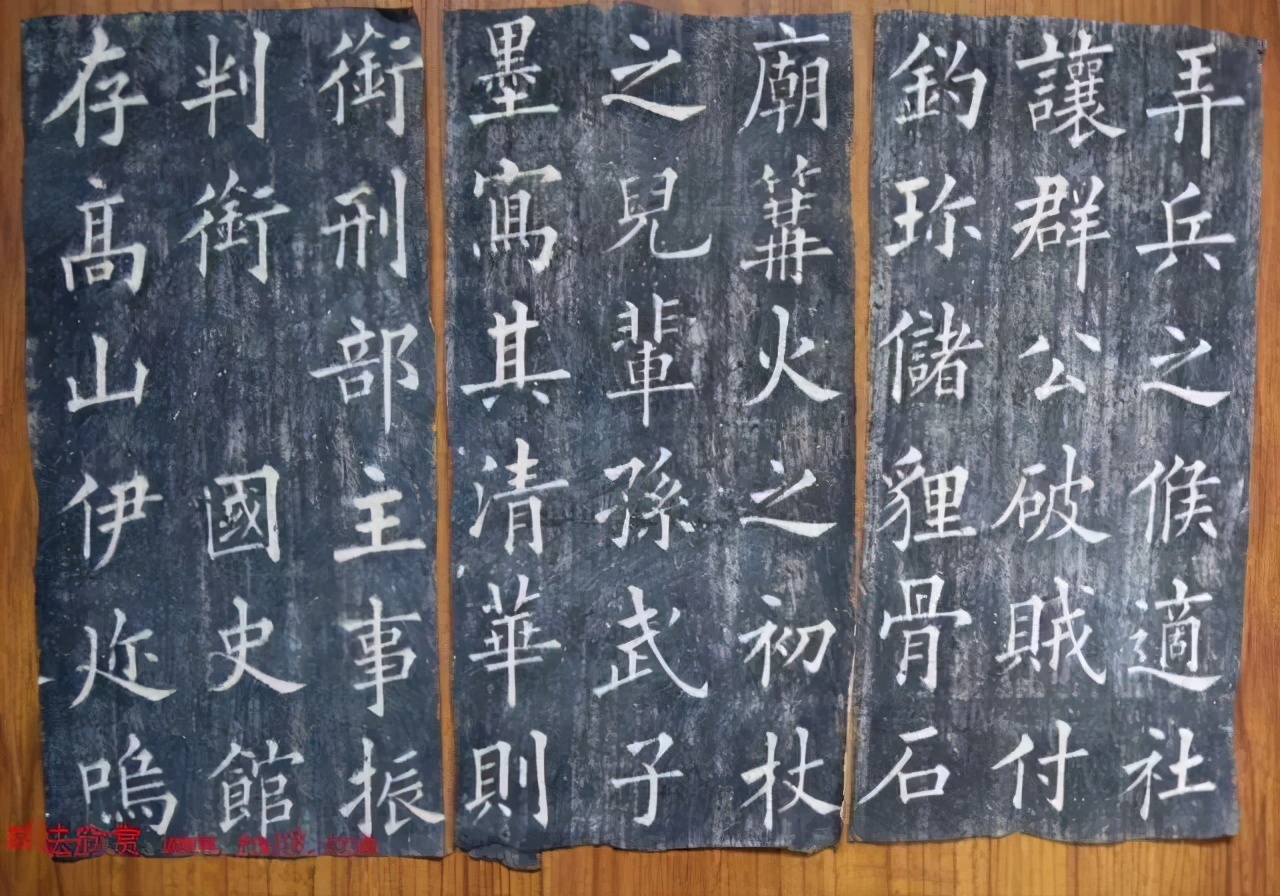 弄兵之候適社
讓群公破賊付
釣珎儲貍骨石
廟篝火之初杖
之兒輩孫武子
墨寫其清華則
銜刑部主事振
判銜國史館
存高山伊迩嗚